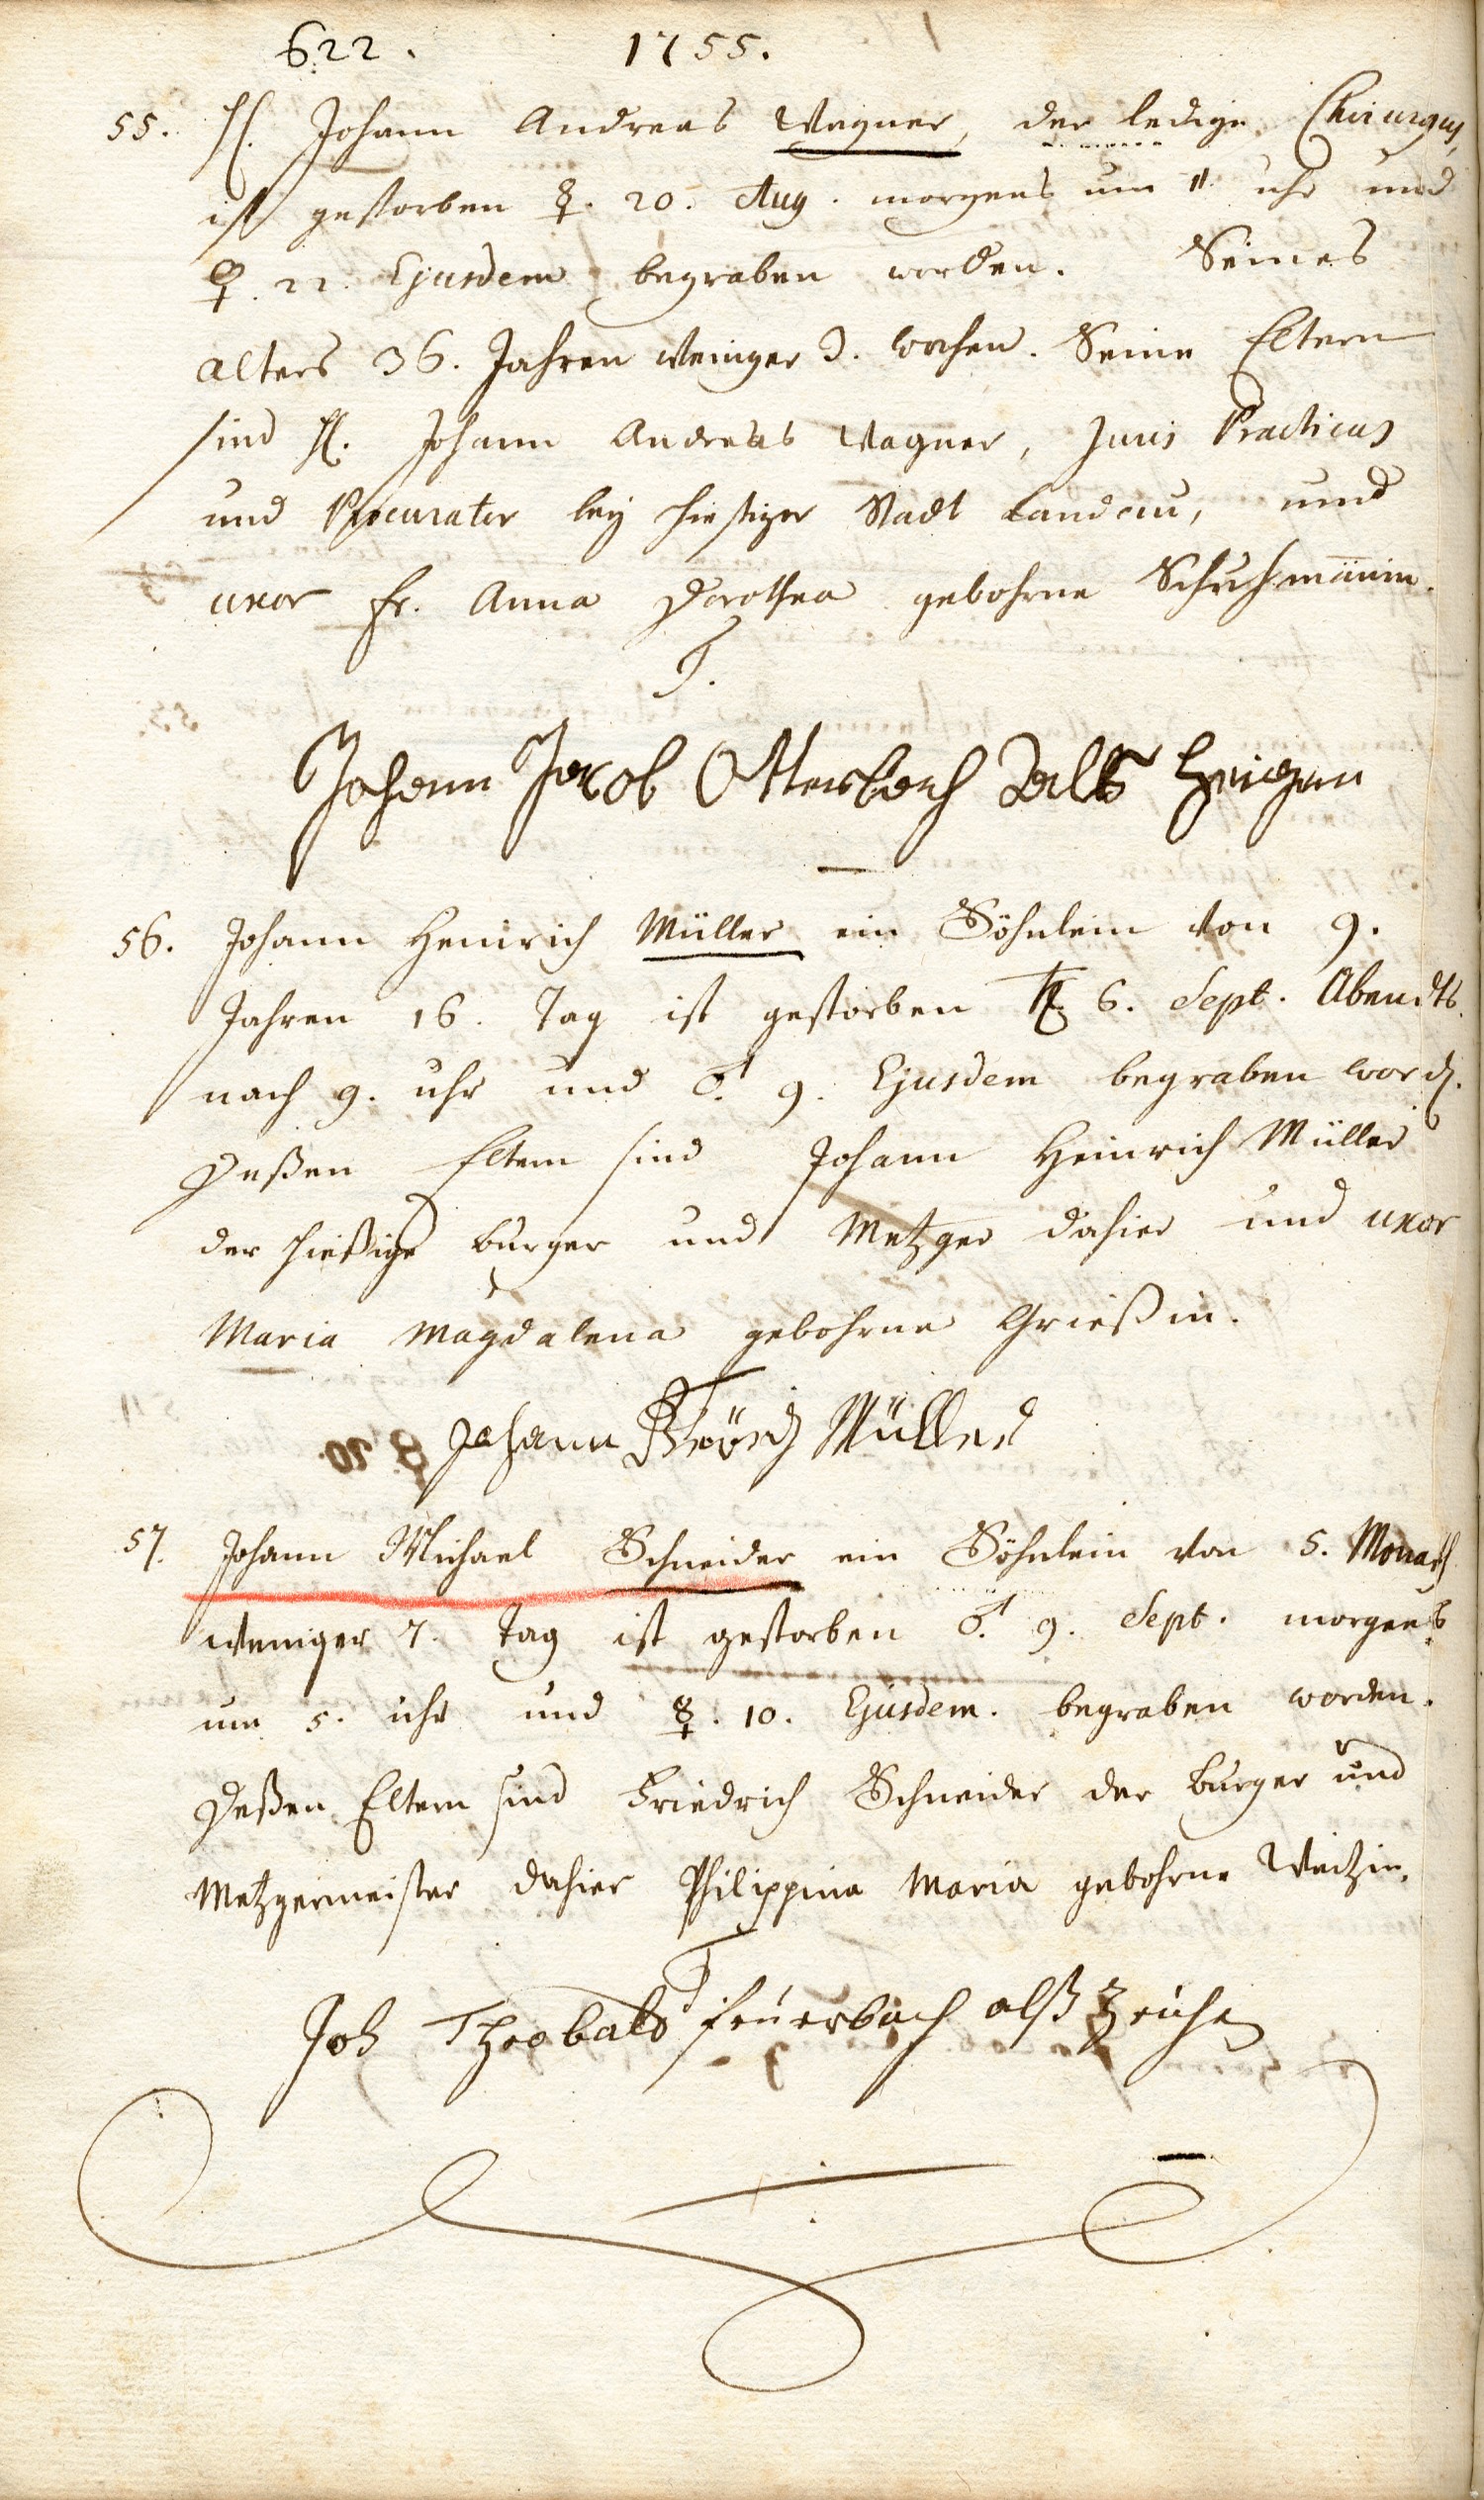 622. 1755.
55. H. Johann Andreas Wagner, der ledige Chirurgus,
ist gestorben ☿. 20. Aug. morgens um 11 uhr und
♀. 22. Ejusdem begraben worden. Seines
alters 36. Jahren weniger 3. wochen. Seine Eltern
sind H. Johann Andreas Wagner, Juris Practicus
und Procurator bey hiesiger Stadt Landau, und
uxor Fr. Anna Dorothea gebohrne Schuhmännin.
T.
Johann Jacob Otterbach alß
56. Johann Heinrich Müller ein Söhnlein von 9.
Jahren 16. Tag ist gestorben ♄ 6. Sept. Abendts
nach 9. uhr und ♂. 9. Ejusdem begraben word.
Deßen Eltern sind Johann Heinrich Müller
der hießige burger und Metzger dahier und uxor
Maria Magdalena gebohrne Grießin.
T
Johann Müller
57. Johann Michael Schneider ein Söhnlein von 5. Monath
weniger 7. Tag ist gestorben ♂. 9. Sept. morgens
um 5. uhr und ☿. 10. Ejusdem. begraben worden.
Deßen Eltern sind Friedrich Schneider der burger und
Metzgermeister dahier Philippina Maria gebohrne Weitzin.
T
Joh Theobald feuerbach alß zeuge